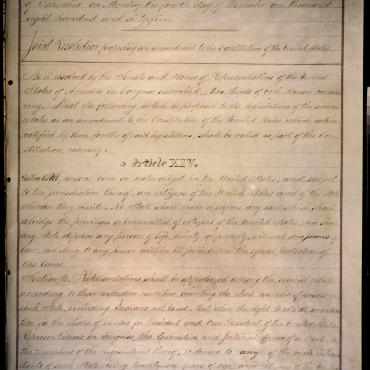 of December, on Monday, the fourth day of December, one thousand
eight hundred and sixty-five
Joint Resolution proposing an amendment to the Constitution of the United States.
Be it resolved by the Senate and House of Representatives of the United
States of America in Congress assembled, two thirds of both Houses concur-
ring, That the following article be proposed to the legislatures of the several
States as an amendment to the Constitution of the United States, which, when
ratified by three fourths of said legislatures, shall be valid as part of the Con-
stitution, namely:
Article XIV.
Section 1. All persons born or naturalized in the United States, and subject
to the jurisdiction thereof, are citizens of the United States and of the State
wherein they reside. No State shall make or enforce any law which shall
abridge the privileges or immunities of citizens of the United States; nor shall
any State deprive any person of life, liberty, or property, without due process of
law; nor deny to any person within its jurisdiction the equal protection of
the laws.
Section 2. Representatives shall be apportioned among the several States
according to their respective numbers, counting the whole number of persons in
each State, excluding Indians not taxed. But when the right to vote at any elec-
tion for the choice of electors for President and Vice President of the United States,
Representatives in Congress, the Executive and Judicial officers of a State, or
the members of the Legislature thereof, is denied to any of the male inhab-
itants of such State, being twenty-one years of age, and citizens of the